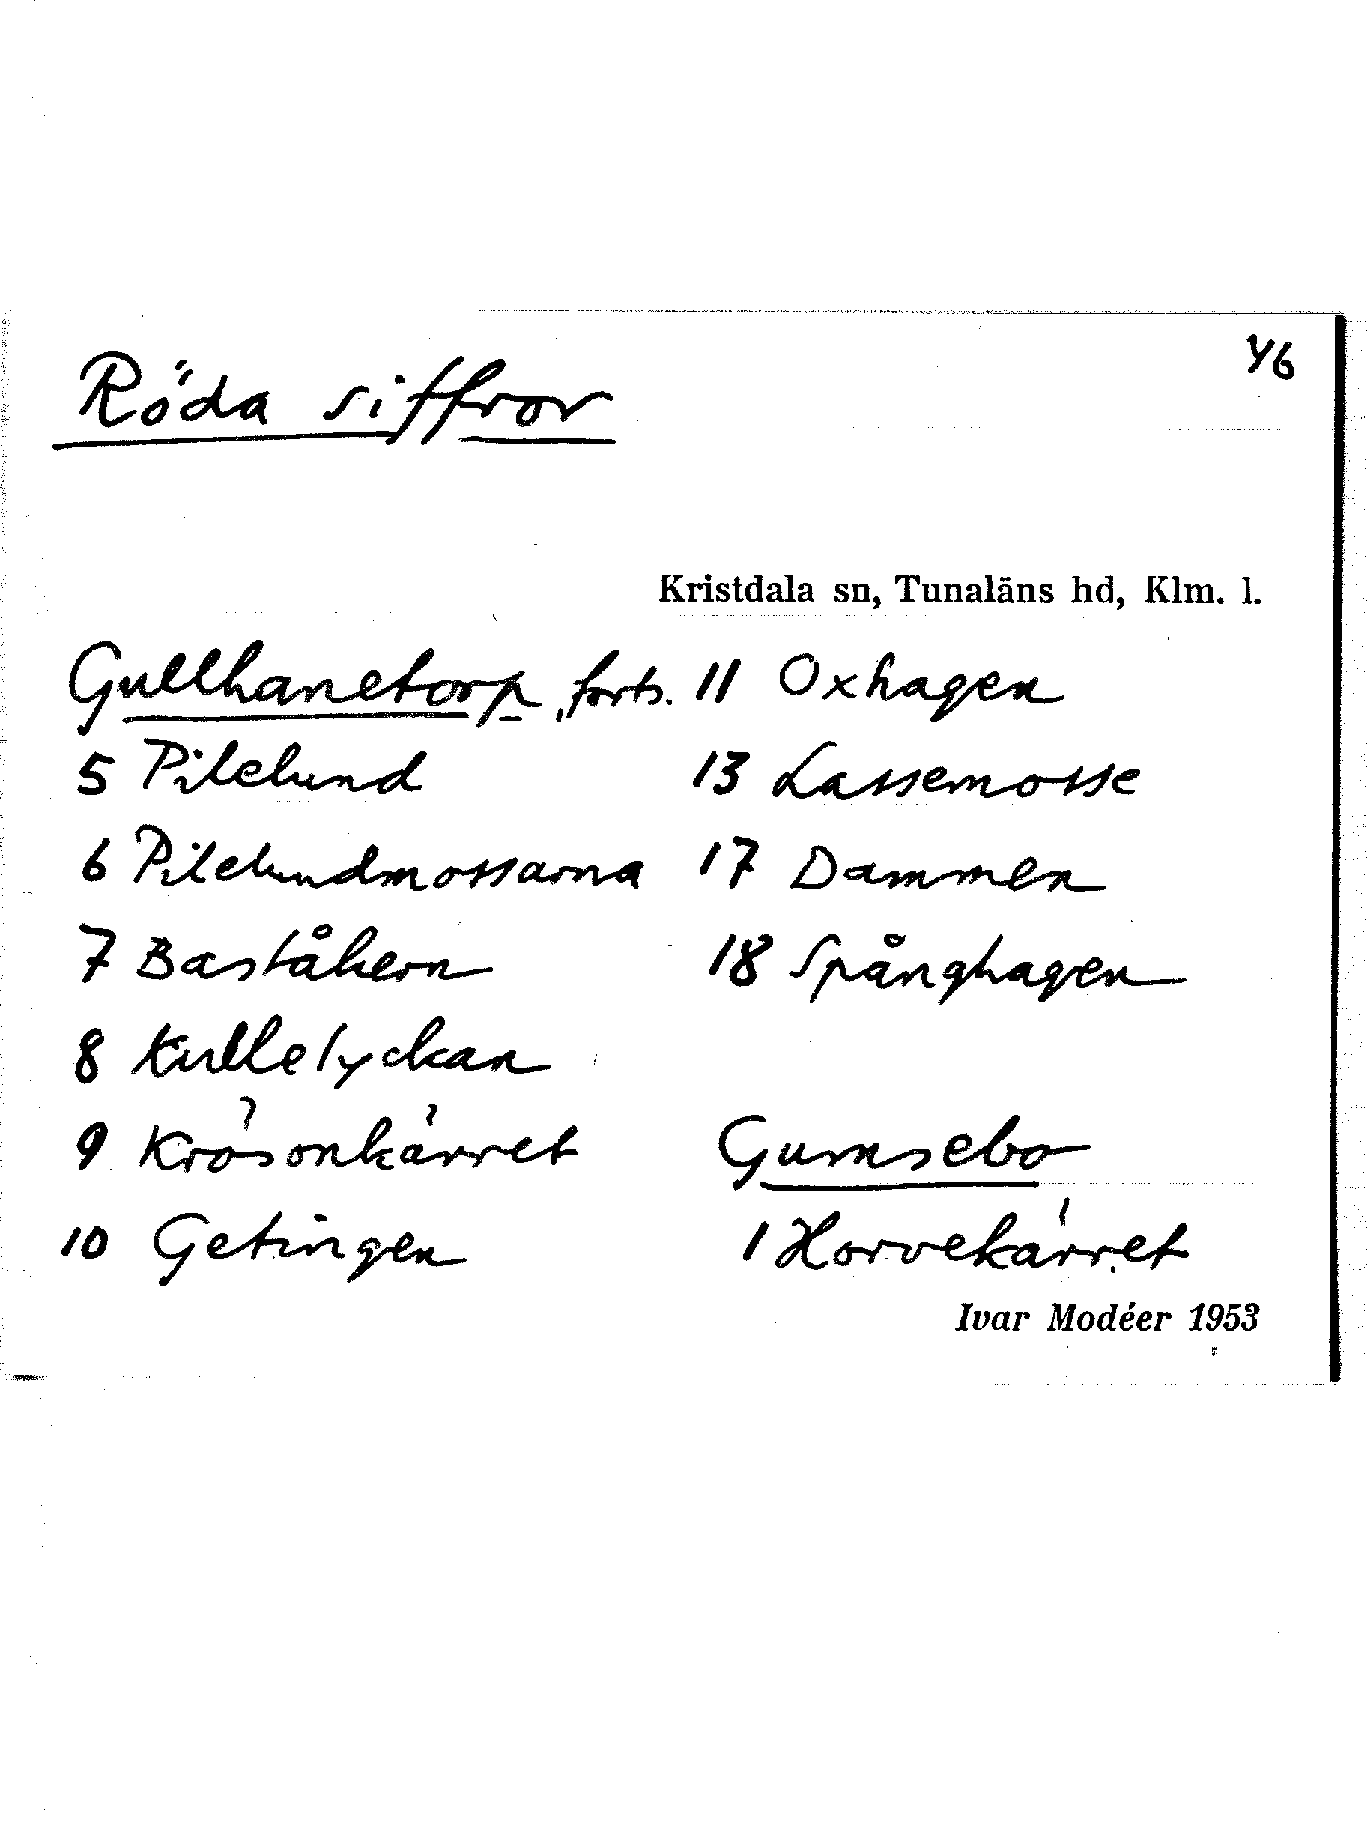 46
Röda siffror
Kristdala sn, Tunaläns hd, Klm. l.
Gullhanetorp, forts.
5 Pilelund
6 Pilelundmossarna
7 Baståkern
8 Kullelyckan
9 Krösonkärret
10 Getingen
11 Oxhagen
13 Lassemosse
17 Dammen
18 Spånghagen
Gumsebo
1 Horvekärret
Ivar Modéer 1953